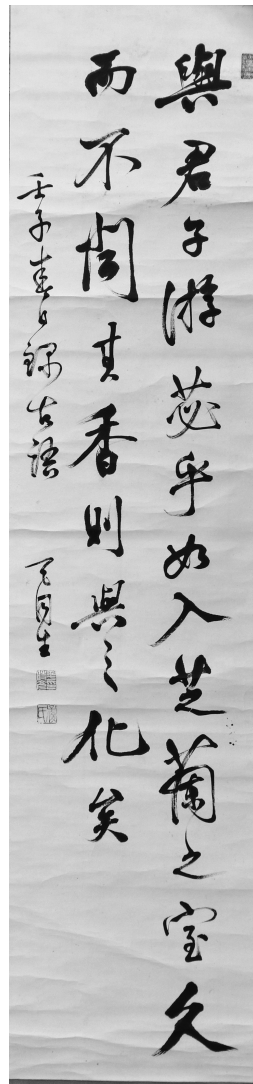 與君子游苾乎如入芝蘭之室久
而不聞其香則與之化矣
壬子春日錄古語